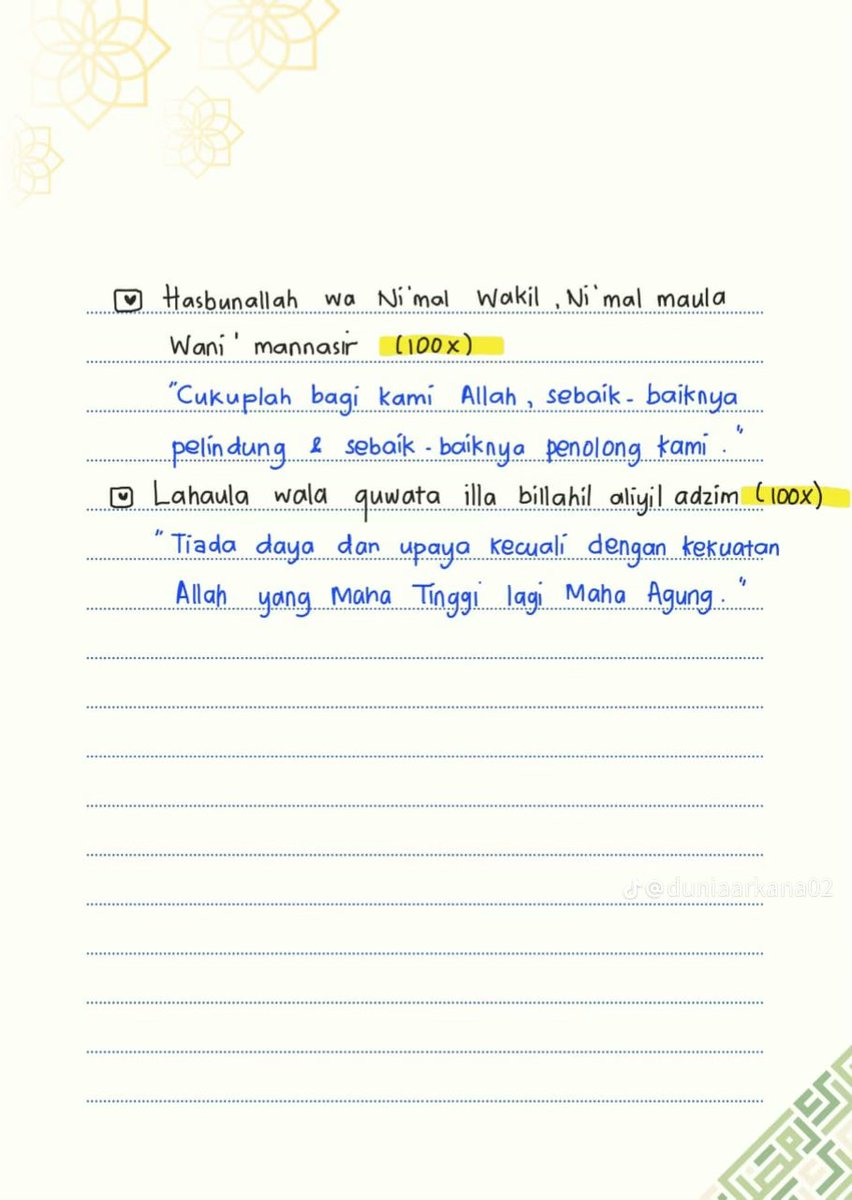 Hasbunallah wa Ni'mal Wakil, Ni'mal maula
Wani' mannasir (100x)
"Cukuplah bagi kami Allah, sebaik-baiknya
pelindung & sebaik-baiknya penolong kami."
Lahaula wala quwata illa billahil aliyil adzim (100x)
"Tiada daya dan upaya kecuali dengan kekuatan
Allah yang Maha Tinggi lagi Maha Agung."
@duniaarkana02